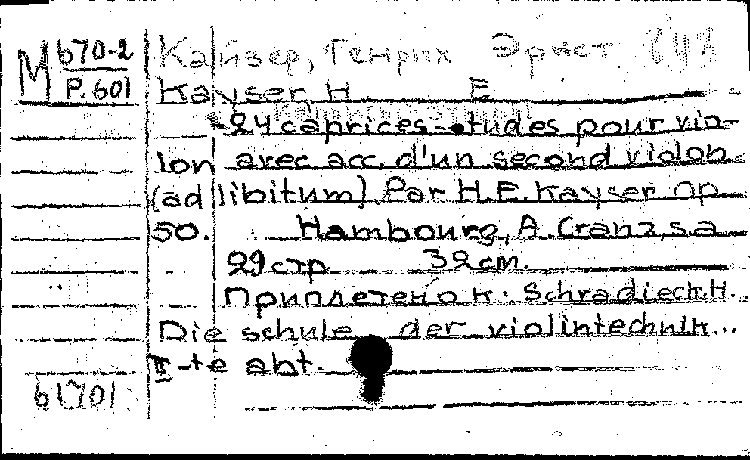 М 670-2
Р.601
Кайзер, Генрих Эрнст
Kayser, H. E.
24 caprices-etudes pour vio-
lon avec acc. d'un second violon
(ad libitum) Par H.E. Kayser op
50. Hambourg, A. Cranz, s.a
29 стр 32 см.
Приплетено к. Schradieck H.
Die schule der violintechnik...
II-te abt.
61701